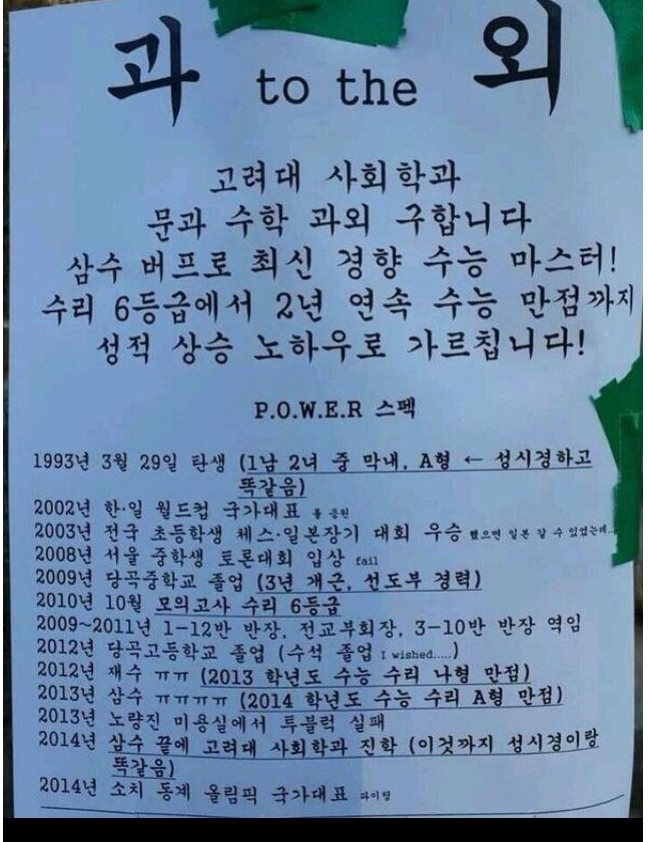 과 to the 외
고려대 사회학과
문과 수학 과외 구합니다
삼수 버프로 최신 경향 수능 마스터!
수리 6등급에서 2년 연속 수능 만점까지
성적 상승 노하우로 가르칩니다!
P.O.W.E.R 스펙
1993년 3월 29일 탄생 (1남 2녀 중 막내, A형 ← 성시경하고
똑같음)
2002년 한·일 월드컵 국가대표 응원
2003년 전국 초등학생 체스·일본장기 대회 우승 했으면 일본 갈 수 있었는데...
2008년 서울 중학생 토론대회 입상 fail
2009년 당곡중학교 졸업 (3년 개근, 선도부 경력)
2010년 10월 모의고사 수리 6등급
2009~2011년 1-12반 반장, 전교부회장, 3-10반 반장 역임
2012년 당곡고등학교 졸업 (수석 졸업 I wished.....)
2012년 재수 ㅠㅠ (2013 학년도 수능 수리 나형 만점)
2013년 삼수 ㅠㅠㅠㅠ (2014 학년도 수능 수리 A형 만점)
2013년 노량진 미용실에서 투블럭 실패
2014년 삼수 끝에 고려대 사회학과 진학 (이것까지 성시경이랑
똑같음)
2014년 소치 동계 올림픽 국가대표 파이팅